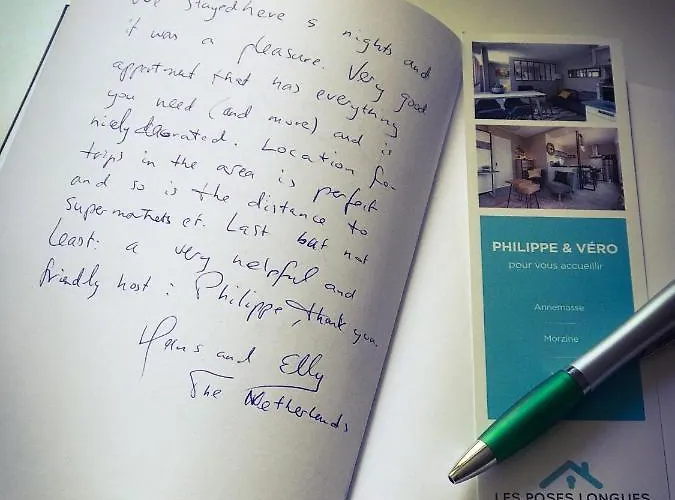 We stayed here 5 nights and
it was a pleasure. Very good
appartment that has everything
you need (and more) and is
nicely decorated. Location for
trips in the area is perfect
and so is the distance to
supermarkets et. Last but not
least: a very helpful and
friendly host: Philippe, thank you.
Hans and Elly
The Netherlands
PHILIPPE & VÉRO
pour vous accueillir
Annemasse
Morzine
LES POSES LONGUES